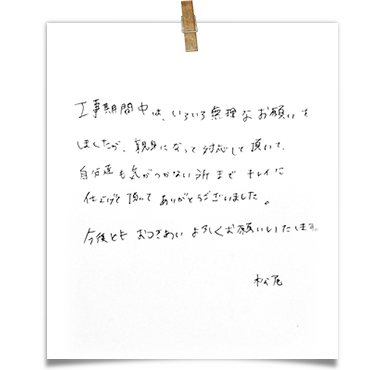 工事期間中は、いろいろ無理なお願いを
しましたが、親身になって対応して頂いて、
自分達も気がつかない所まで キレイに
仕上げて頂いて ありがとうございました。
今後とも おつきあい よろしくお願いいたします。
松尾